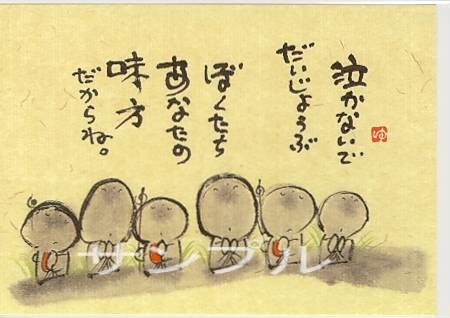 泣かないで
だいじょうぶ
ぼくたち
あなたの
味方
だからね。
ゆ
サンプル